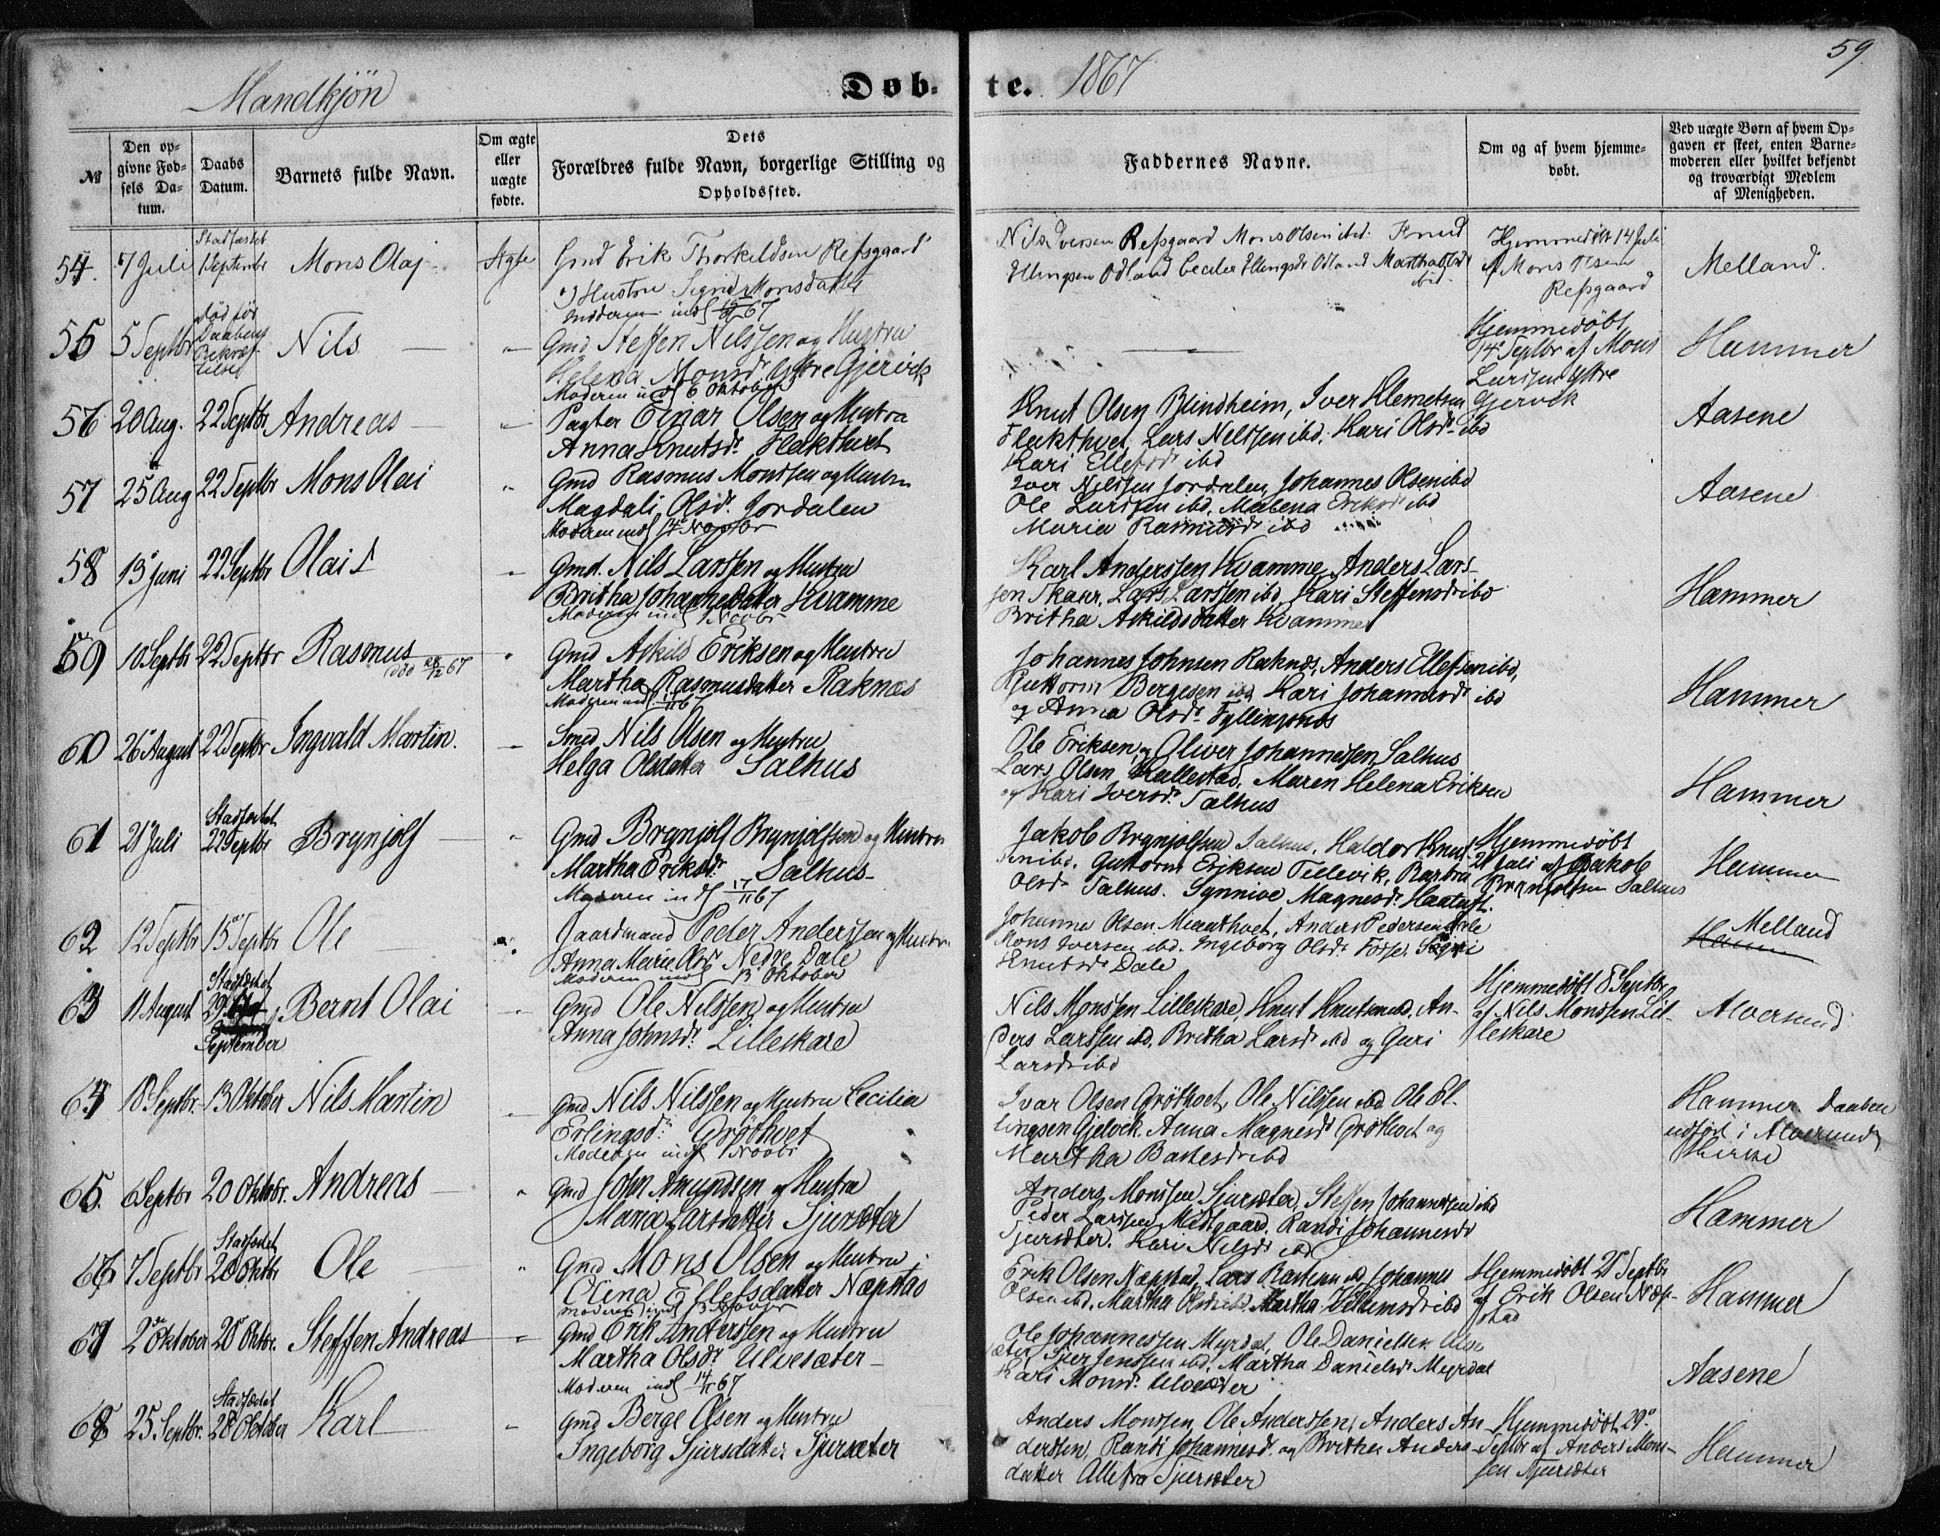 59
Mandkjön
Døb-
te. 1867
№
Den op-
givne Fød-
sels Da-
tum.
Daabs
Datum.
Barnets fulde Navn.
Om ægte
eller
uægte
fødte.
Dets
Forældres fulde Navn, borgerlige Stilling og
Opholdssted.
Faddernes Navne.
Om og af hvem hjemme-
døbt.
Ved uægte Børn af hvem Op-
gaven er skeet, enten Barne-
moderen eller hvilket bekjendt
og troværdigt Medlem
af Menigheden.
54. 7 Juli
Stadfæstet
1 September
Mons Olaj
Ægte
Gmd Erik Thorkildsen Refsgaard
Hustru Sigrid Monsdatter
Moderen indl 67
Nils Iversen Refsgaard Mons Olsen ibd. Knud
Ellingsen Odland Cecilie Ellingsdr Odland Martha
ibd.
Hjemmedöbt 14 Juli
af Mons Olsen
Refsgaard
Melland.
55 5 Septbr
död för
Daabens
Bekræf-
telse
Nils
Gmd Steffen Nilssen og Hustru
Helena Monsdr. Ystre Gjervik
Moderen indl 6 Oktober
Hjemmedöbt
14 Septbr af Mons
Larssen Ystre
Gjervik
Hammer
56 20 Aug. 22 Septbr Andreas
Pagter Einar Olsen og Hustru
Anna Knutsdr. Flakthvet
Knut Olsen Blindheim, Iver Klemetsen
Flakthvet, Lars Nilssen ibd. Kari Olsdr ibd
Kari Ellefsdr ibd
Aasene
57 25 Aug 22 Septbr Mons Olai
Gmd Rasmus Monssen og Hustru
Magdali Olsdr. Jordalen
Moderen indl 14 Novbr
Iver Nilssen Jordalen, Johannes Olsen ibd
Ole Larssen ibd. Malena Eriksdr ibd
Maria Rasmusdr ibd
Aasene
58 13 juni 22 Septbr Olai
Gmd. Nils Larssen og Hustru
Britha Johannesdatter Kvamme
Moderen indl Novbr
Karl Anderssen Kvamme, Anders Lars-
sen Skaur. Lars Larssen ibd, Kari Steffensdr ibd
Britha Askildsdatter Kvamme
Hammer
59 10 Septbr 22 Septbr Rasmus
död 28/12 67
Gmd Askild Eriksen og Hustru
Martha Rasmusdatter Raknæs
Moderen indl
Johannes Johnsen Raknæs, Anders Ellefsen ibd,
Guttorm Bergesen ibd, Kari Johannesdr ibd
og Anna Olsdr. Fyllingsnæs
Hammer
60 26 August 22 Septbr Ingvald Martin.
Smed Nils Olsen og Hustru
Helga Olsdatter Salhus
Ole Eriksen, og Oliver Johannessen, Salhus
Lars Olsen Kallestad, Maren Helena Eriksen
og Kari Iversdr. Salhus
Hammer
61 21 Juli
Stadfæstet
22 Septbr
Brynjolf
Gmd Brynjolf Brynjolfsen og Hustru
Martha Eriksdr. Salhus
Moderen indl 17/11 67
Jakob Brynjolfsen Salhus, Haldor Knut-
sen ibd. Guttorm Eriksen Tellevik, Barbra
Olsdr Salhus. Synnive Magnesdr. Haatuft.
Hjemmedöbt
21 Juli af Jakob
Brynjolfsen Salhus
Hammer
62 12 Septbr 15 Septbr Ole
Gaardmand Peder Anderssen og Hustru
Anna Marie Olsdr Nedre Dale
Moderen indl 13 Oktober
Johanne Olsen Miaathvet, Anders Pedersen Dale
Mons Iversen ibd. Ingeborg Olsdr. Fosse. Sigri
Knutsdr Dale
Melland
63 11 August
Stadfæstet
29
September
Bernt Olai
Gmd Ole Nilssen og Hustru
Anna Johnsdr. Lilleskare
Nils Monssen Lilleskare, Knut Knutsen ibd, An-
ders Larssen ibd, Britha Larsdr ibd og Guri
Larsdr ibd
Hjemmedöbt 8 Septbr
af Nils Monssen Lil-
leskare
Alversund
64 18 Septbr. 13 Oktober Nils Martin
Gmd Nils Nilssen og Hustru Cecilia
Erlingsdr. Gröthvet
Moderen indl Novbr
Ivar Olsen Gröthvet, Ole Nilssen ibd Ole El-
lingsen Gjelvik. Anna Magnesdr Gröthvet og
Martha Baktesdr ibd
Hammer. Daaben
udfört i Alversund
Kirke
65. 6 Septbr 20 Oktobr. Andreas
Gmd John Amundssen og Hustru
Maria Larsdatter Sjursæter
Anders Monssen Sjursæter, Steffen Johannessen ibd
Peder Larssen Midtgaard, Randi Johannesdr
Sjursæter. Kari Nilsdr ibd
Hammer
66 7 Septbr
Stadfæstet
20 Oktbr
Ole
Gmd Mons Olsen og Hustru
Olina Ellefsdatter Næpstad
Moderen indl 13 Novbr
Erik Olsen Næpstad, Lars ibd, Johannes
Olsen ibd. Martha Olsdr ibd. Martha Villumsdr ibd
Hjemmedöbt 21 Septbr
af Erik Olsen Næp-
stad
Hammer
67 2 Oktober 20 Oktbr. Steffen Andreas
Gmd Erik Anderssen og Hustru
Martha Olsdr Ulvesæter
Moderen indl 14/11 67
Ole Johannessen Myrdal, Ole Danielsen Ulve
sæter, Sjur Jenssen ibd, Martha Danielsdr Myrdal
Kari Monsdr. Ulvesæter
Aasene
68 25 Septbr.
Stadfæstet
20 Oktober
Karl
Gmd Berge Olsen og Hustru
Ingeborg Sjursdatter Sjursæter
Anders Monssen, Ole Anderssen, Anders An-
derssen, Randi Johannesdr. og Britha Anders-
datter Alle fra Sjursæter
Hjemmedöbt 29
Septbr af Anders Mons-
sen Sjursæter
Hammer